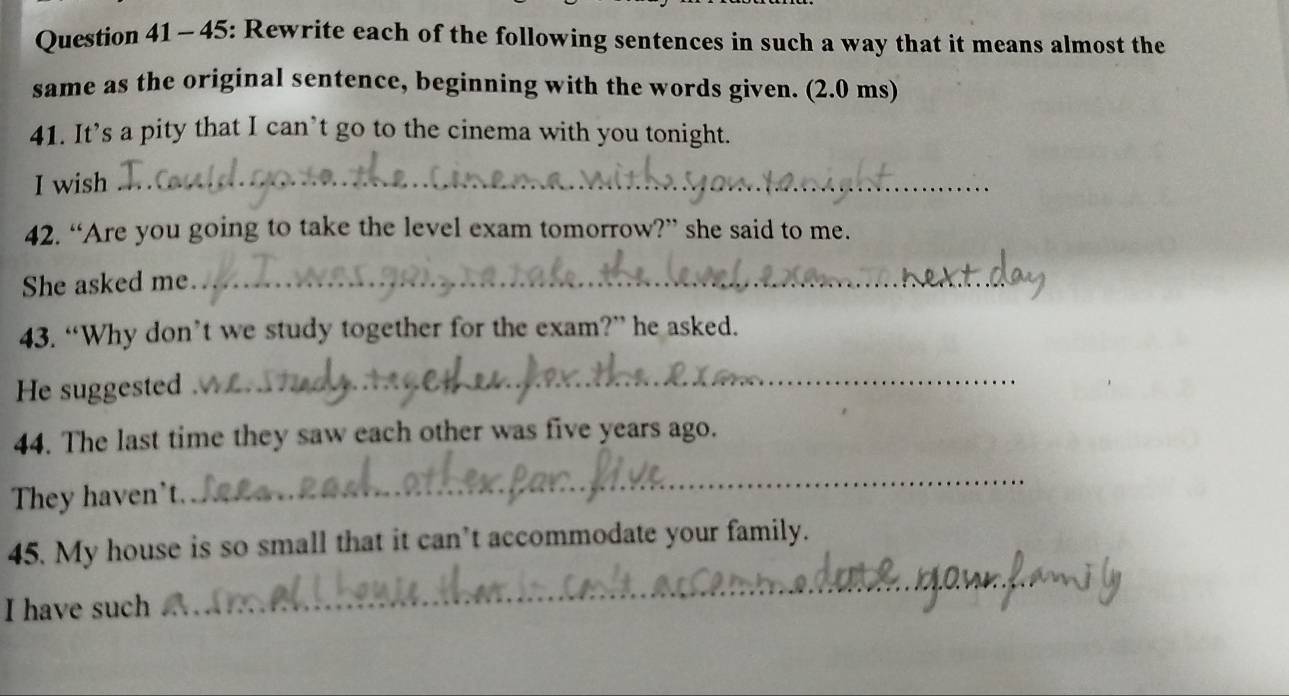 Question 41 – 45: Rewrite each of the following sentences in such a way that it means almost the
same as the original sentence, beginning with the words given. (2.0 ms)
41. It's a pity that I can't go to the cinema with you tonight.
I wish I could go to the cinema with you tonight
42. "Are you going to take the level exam tomorrow?" she said to me.
She asked me if I was going to take the level exam next day
43. "Why don't we study together for the exam?" he asked.
He suggested we study together for the exam
44. The last time they saw each other was five years ago.
They haven't seen each other for five
45. My house is so small that it can't accommodate your family.
I have such a small house that it can't accommodate your family